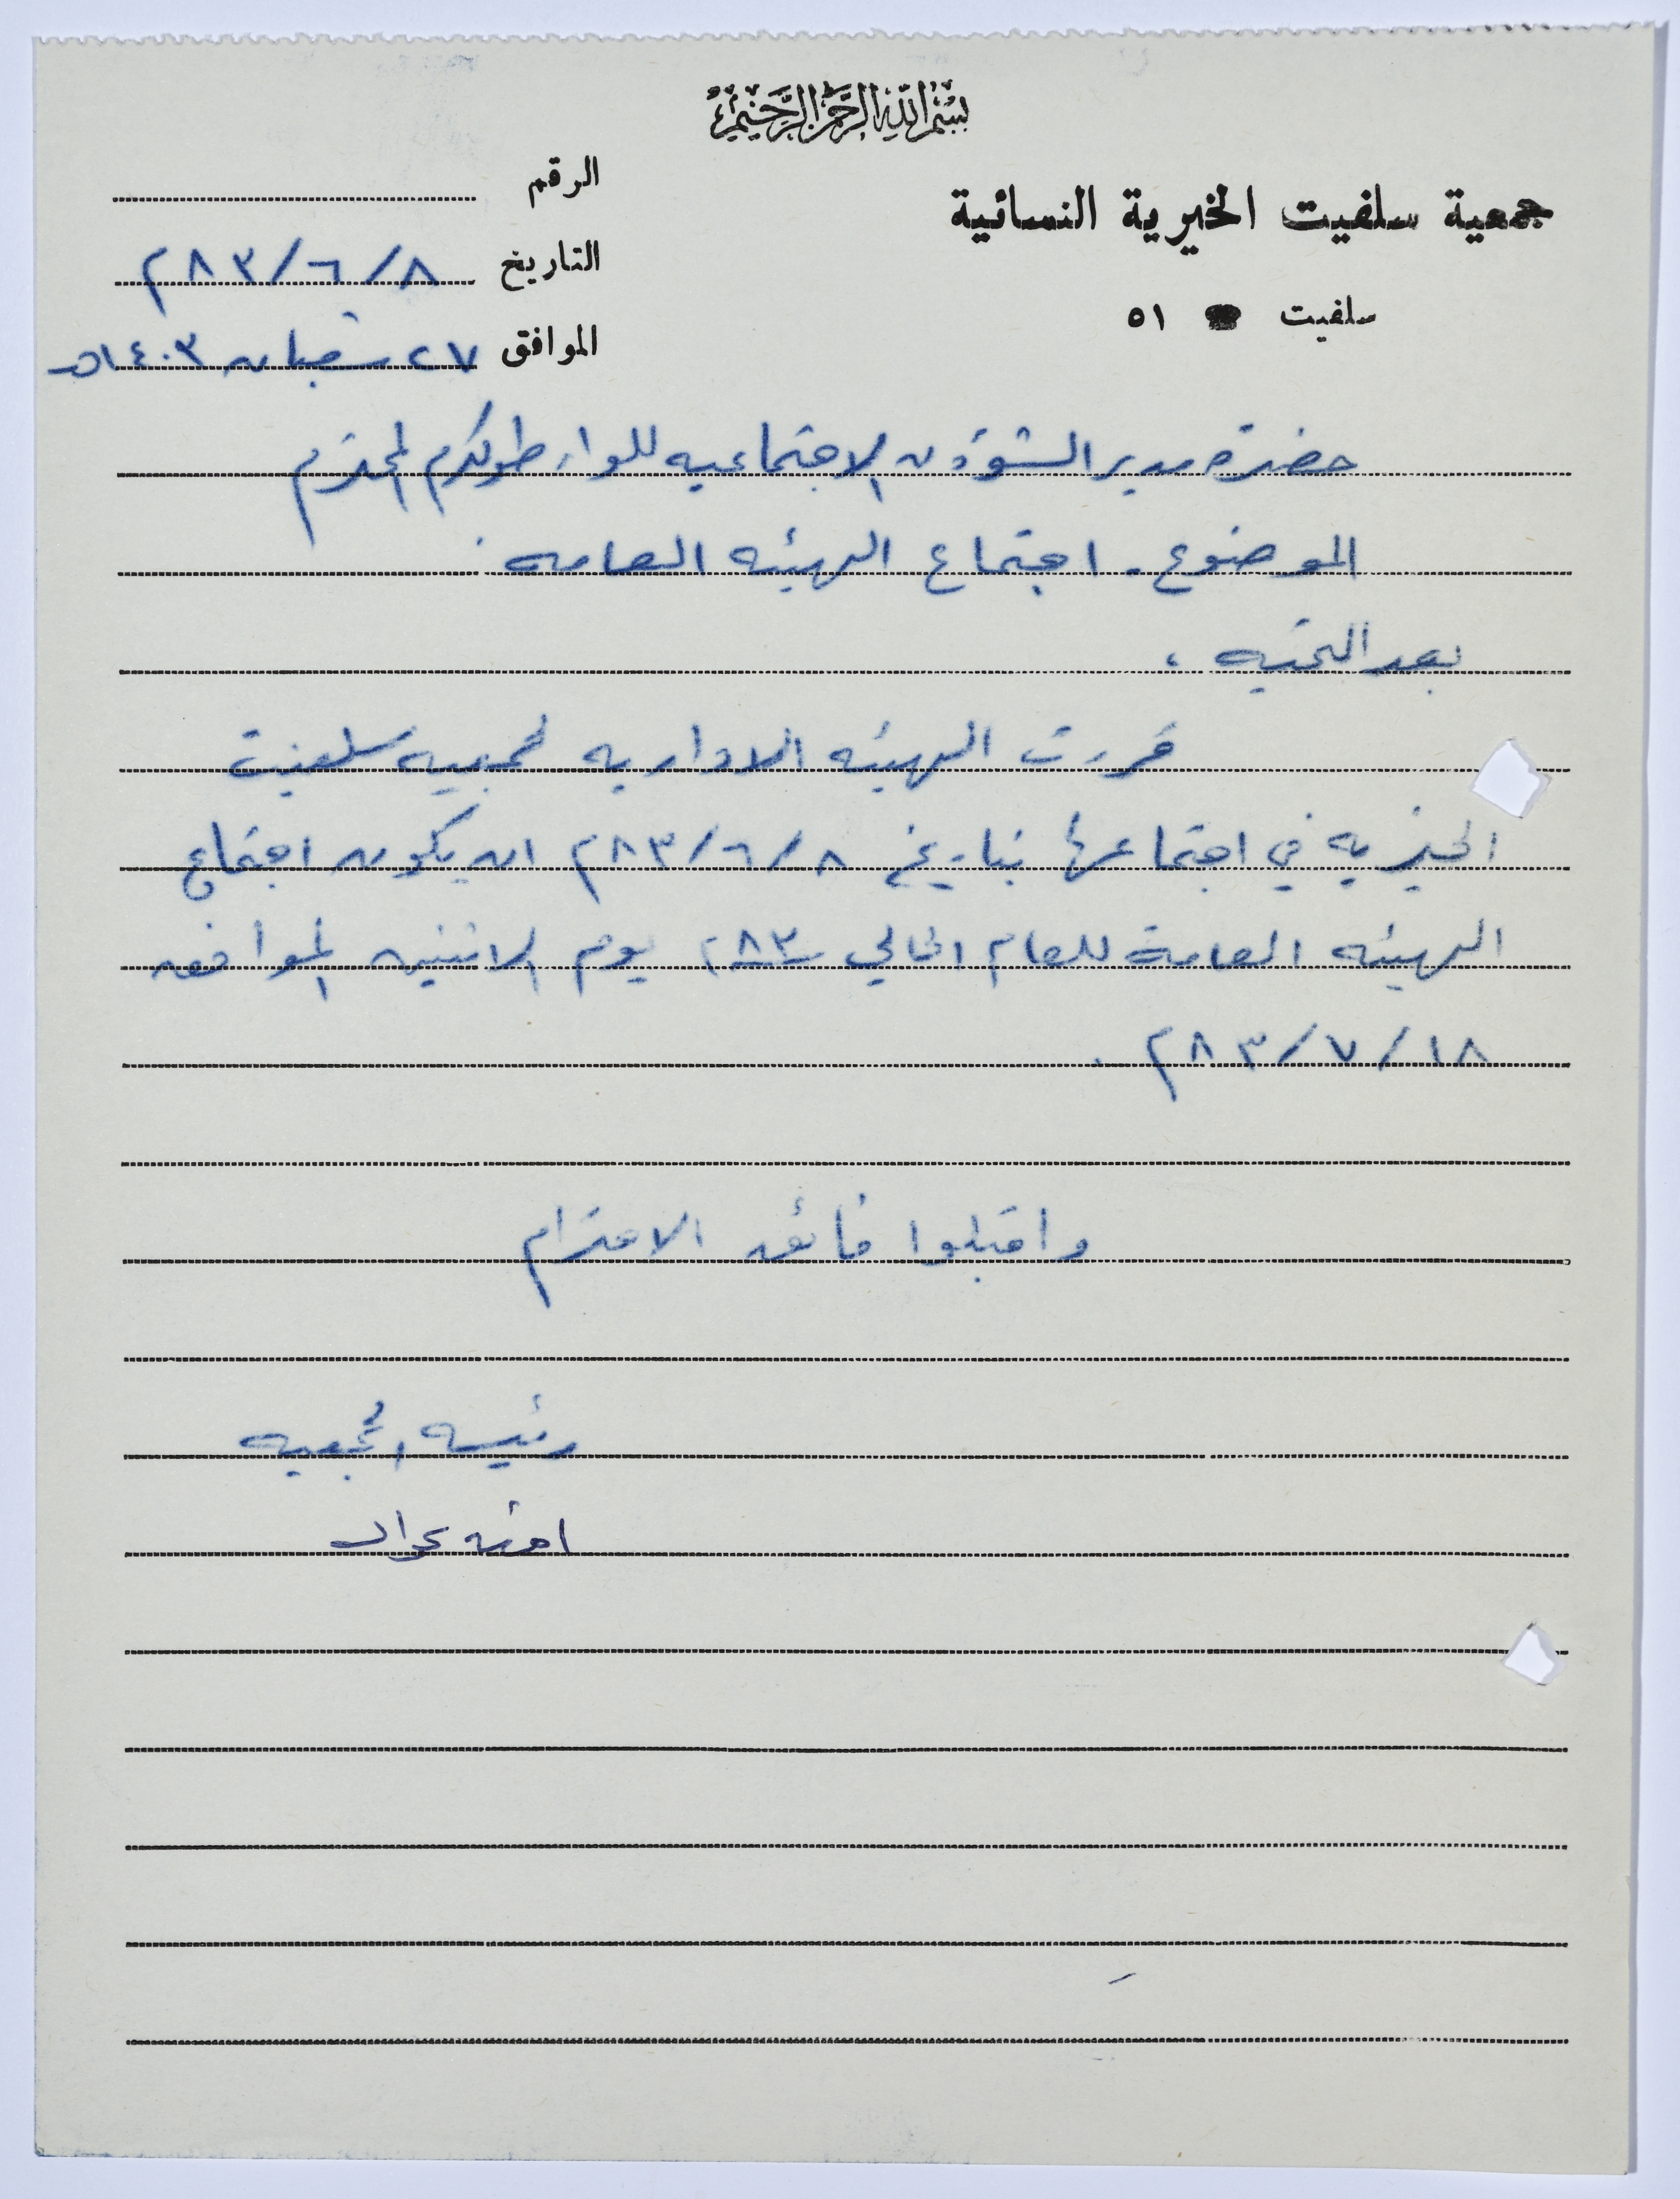 بسم الله الرحمن الرحيم
جمعية سلفيت الخيرية النسائية
سلفيت ٥١
الرقم
التاريخ ٨/٦/٨٣م
الموافق ٢٧ شعبان ١٤٠٣هـ
حضرة مدير الشؤون الاجتماعيه للواء طولكرم المحترم
الموضوع - اجتماع الهيئه العامه .
بعد التحيه ،
قررت الهيئه الاداريه لجمعيه سلفيت
الخيريه في اجتماعها بتاريخ ٨/٦/٨٣م ان يكون اجتماع
الهيئه العامة للعام الحالي ٨٣م يوم الاثنين الموافق
١٨/٧/٨٣م .
واقبلوا فائق الاحترام
رئيسه الجمعيه
امنه